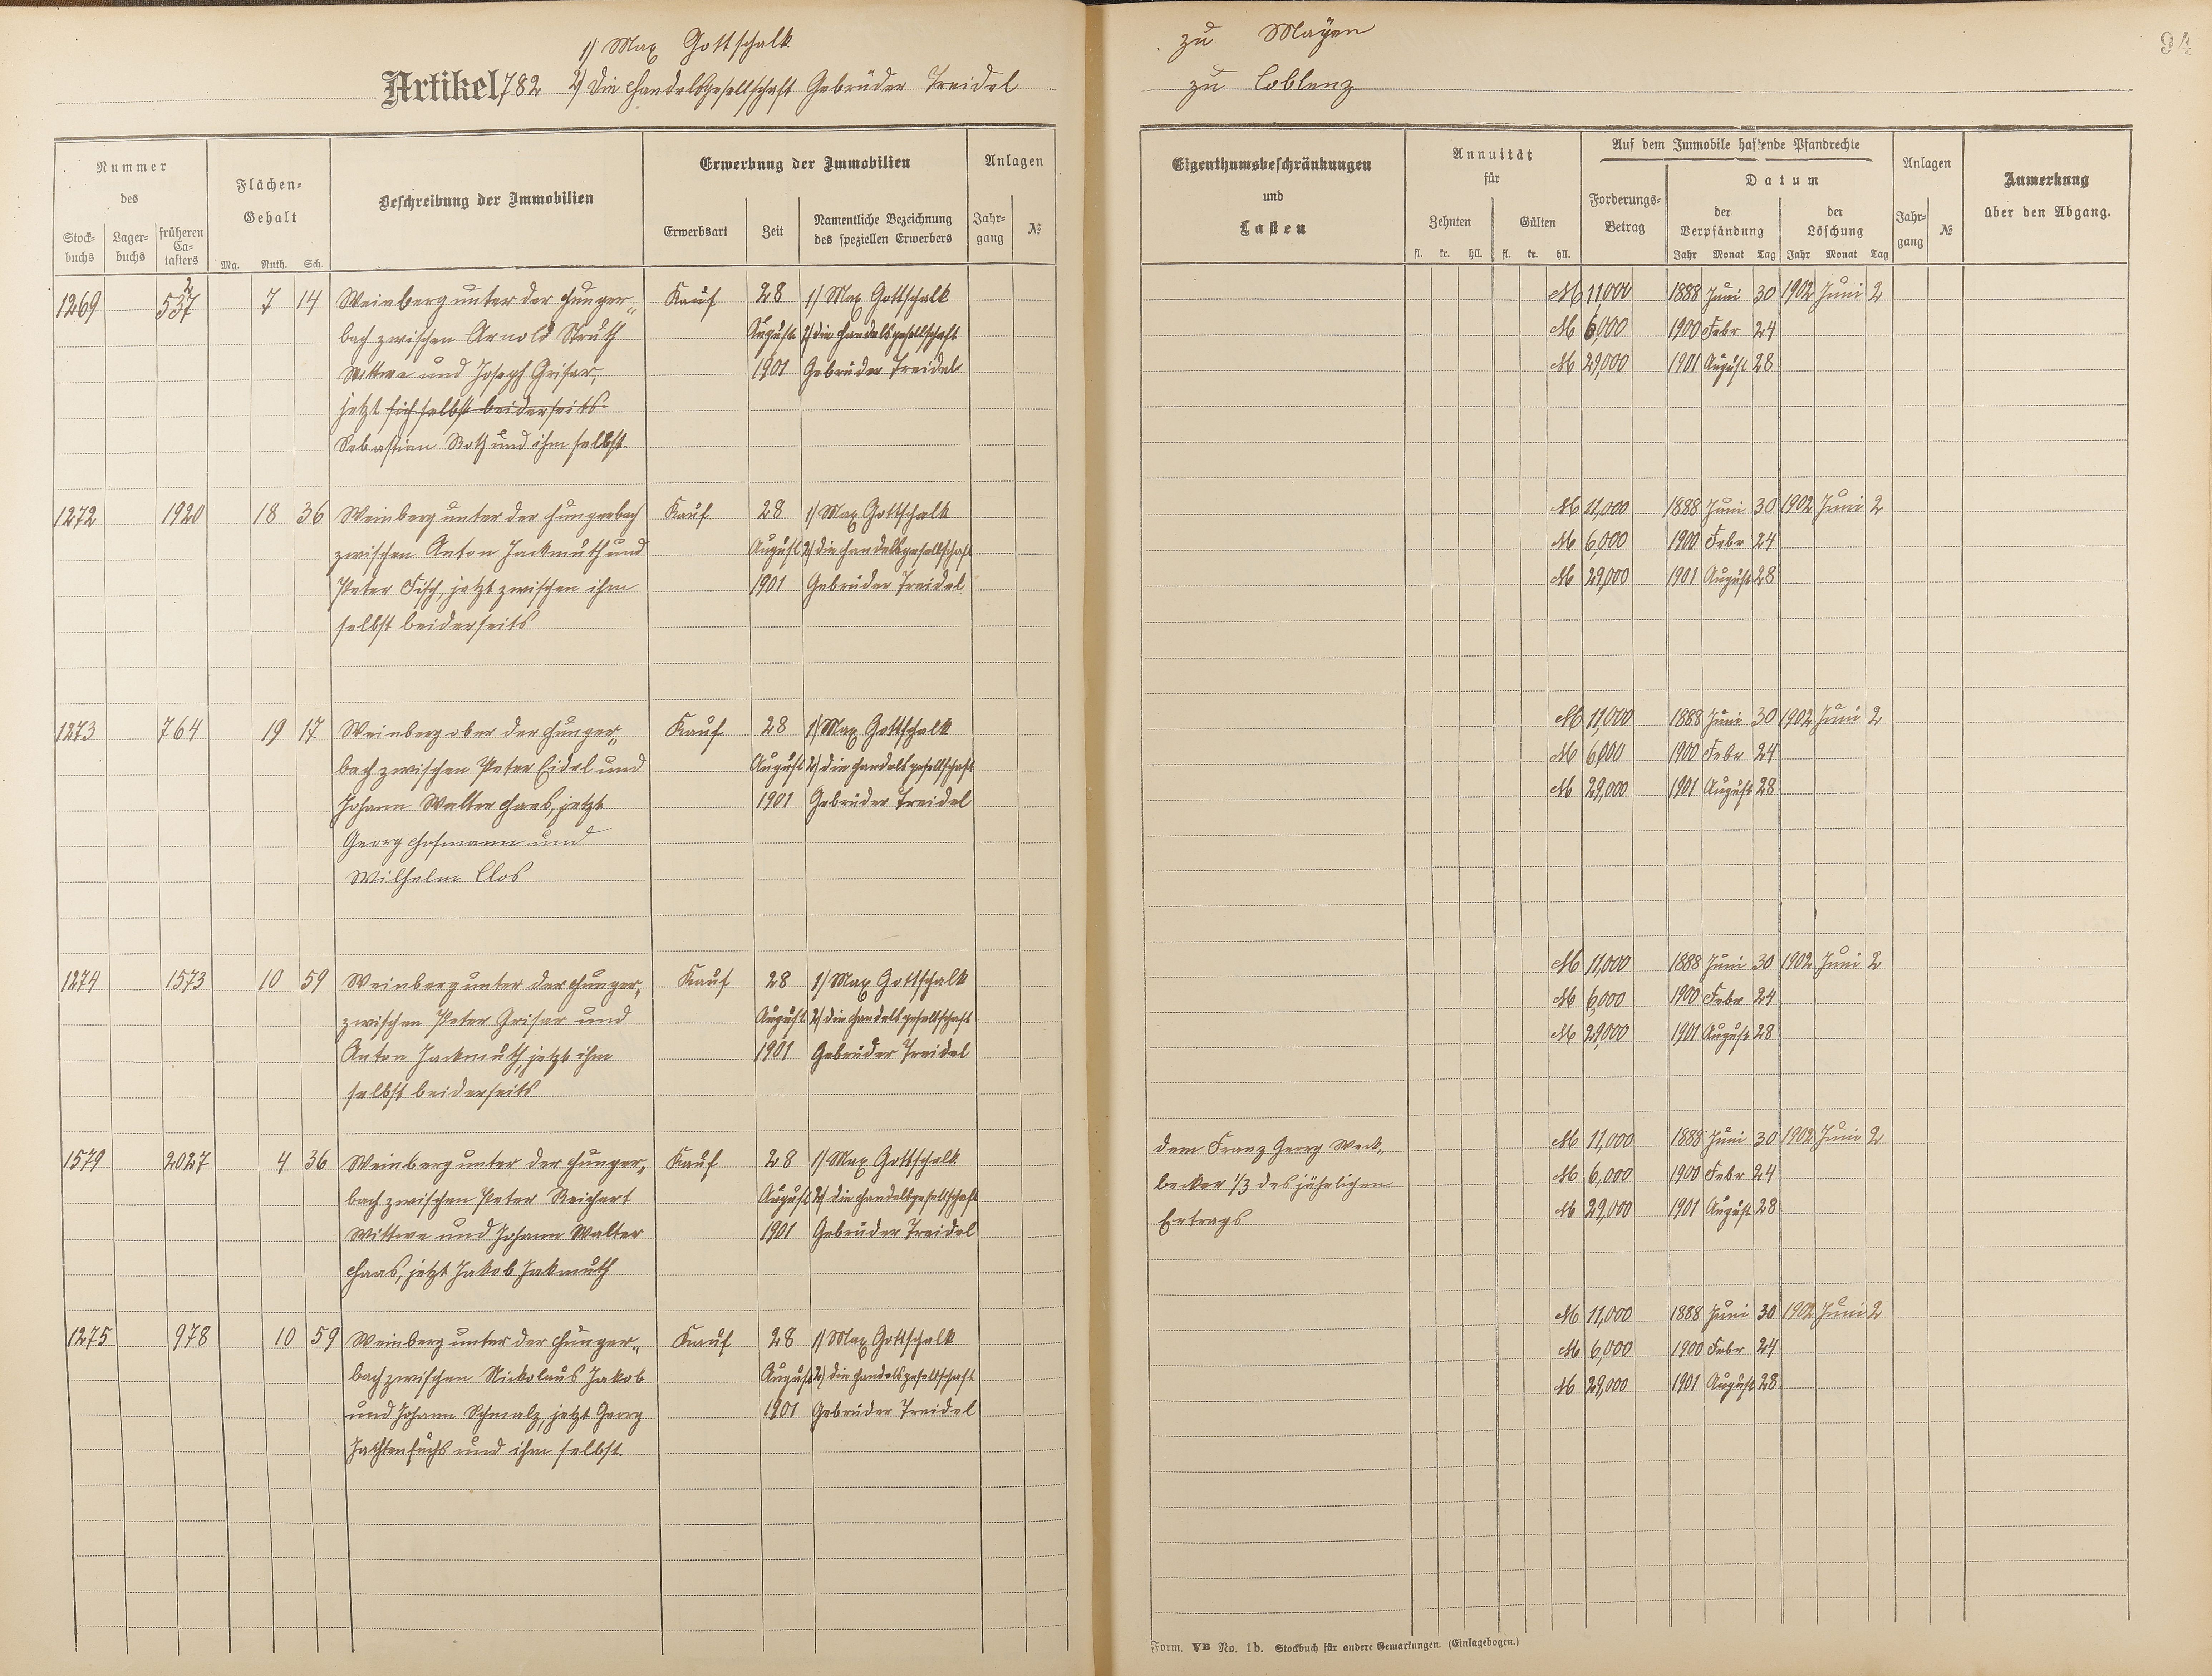 94
1) Max Gottschalk zu Mayen
Artikel 782 2) Die Handelsgesellschaft Gebrüder Treidel zu Coblenz
Nummer des
Stock-buchs
Lager-buchs
früheren Ca-tasters
Flächen-Gehalt
Mg. Ruth. Sch.
Beschreibung der Immobilien
Erwerbung der Immobilien
Erwerbsart
Zeit
Namentliche Bezeichnung des speziellen Erwerbers
Anlagen
Jahr-gang
№
Eigenthumsbeschränkungen und Lasten
Annuität für
Zehnten
fl. kr. hll.
Gülten
fl. kr. hll.
Auf dem Immobile haftende Pfandrechte
Forderungs-Betrag
Datum
der Verpfändung
Jahr Monat Tag
der Löschung
Jahr Monat Tag
Anlagen
Jahr-gang
№
Anmerkung über den Abgang.
1269 537 2 7 14 Weinberg unter der Hunger„ Kauf 28 1) Max Gottschalk
bach zwischen Arnold Struth August 2) die Handelsgesellschaft
Wittwe und Joseph Griser, 1901 Gebrüder Treidel
jetzt sich selbst beiderseits
Sebastian Roth und ihm selbst.
M 11,000 1888 Juni 30 1902 Juni 2
M 6,000 1900 Febr 24
M 29,000 1901 August 28
1272 1920 18 36 Weinberg unter der Hungerbach Kauf 28 1) Max Gottschalk
zwischen Anton Jackmuth und August 2) die Handelsgesellschaft
Peter Fisch, jetzt zwischen ihm 1901 Gebrüder Treidel
selbst beiderseits
M 11,000 1888 Juni 30 1902 Juni 2
M 6,000 1900 Febr 24
M 29,000 1901 August 28
1273 764 19 17 Weinberg ober der Hunger„ Kauf 28 1) Max Gottschalk
bach zwischen Peter Eidel und August 2) die Handelsgesellschaft
Johann Walter Haas, jetzt 1901 Gebrüder Treidel
Georg Hofmann und
Wilhelm Clos
M 11,000 1888 Juni 30 1902 Juni 2
M 6,000 1900 Febr 24
M 29,000 1901 August 28
1274 1573 10 59 Weinberg unter der Hunger„ Kauf 28 1) Max Gottschalk
zwischen Peter Griser und August 2) die Handelsgesellschaft
Anton Jackmuth, jetzt ihm 1901 Gebrüder Treidel
selbst beiderseits
M 11,000 1888 Juni 30 1902 Juni 2
M 6,000 1900 Febr 24
M 29,000 1901 August 28
1579 2027 4 36 Weinberg unter der Hunger„ Kauf 28 1) Max Gottschalk
bach zwischen Peter Reichert August 2) die Handelsgesellschaft
Wittwe und Johann Walter 1901 Gebrüder Treidel
Haas, jetzt Jakob Jakmuth
dem Franz Georg Weck„
becker 1/3 des jährlichen
Ertrags
M 11,000 1888 Juni 30 1902 Juni 2
M 6,000 1900 Febr 24
M 29,000 1901 August 28
1275 978 10 59 Weinberg unter der Hunger„ Kauf 28 1) Max Gottschalk
bach zwischen Nickolaus Jakob August 2) die Handelsgesellschaft
und Johann Schmalz, jetzt Georg 1901 Gebrüder Treidel
Jachtenfuchs und ihm selbst.
M 11,000 1888 Juni 30 1902 Juni 2
M 6,000 1900 Febr 24
M 29,000 1901 August 28
Form. VB No. 1b. Stockbuch für andere Gemarkungen. (Einlagebogen.)